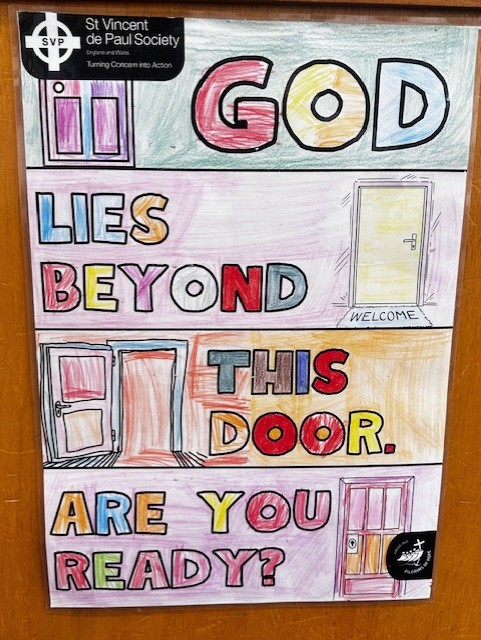 SVP
St Vincent
de Paul Society
England and Wales
Turning Concern into Action
GOD
LIES
BEYOND
WELCOME
THIS
DOOR.
ARE YOU
READY?
PILGRIMS OF HOPE